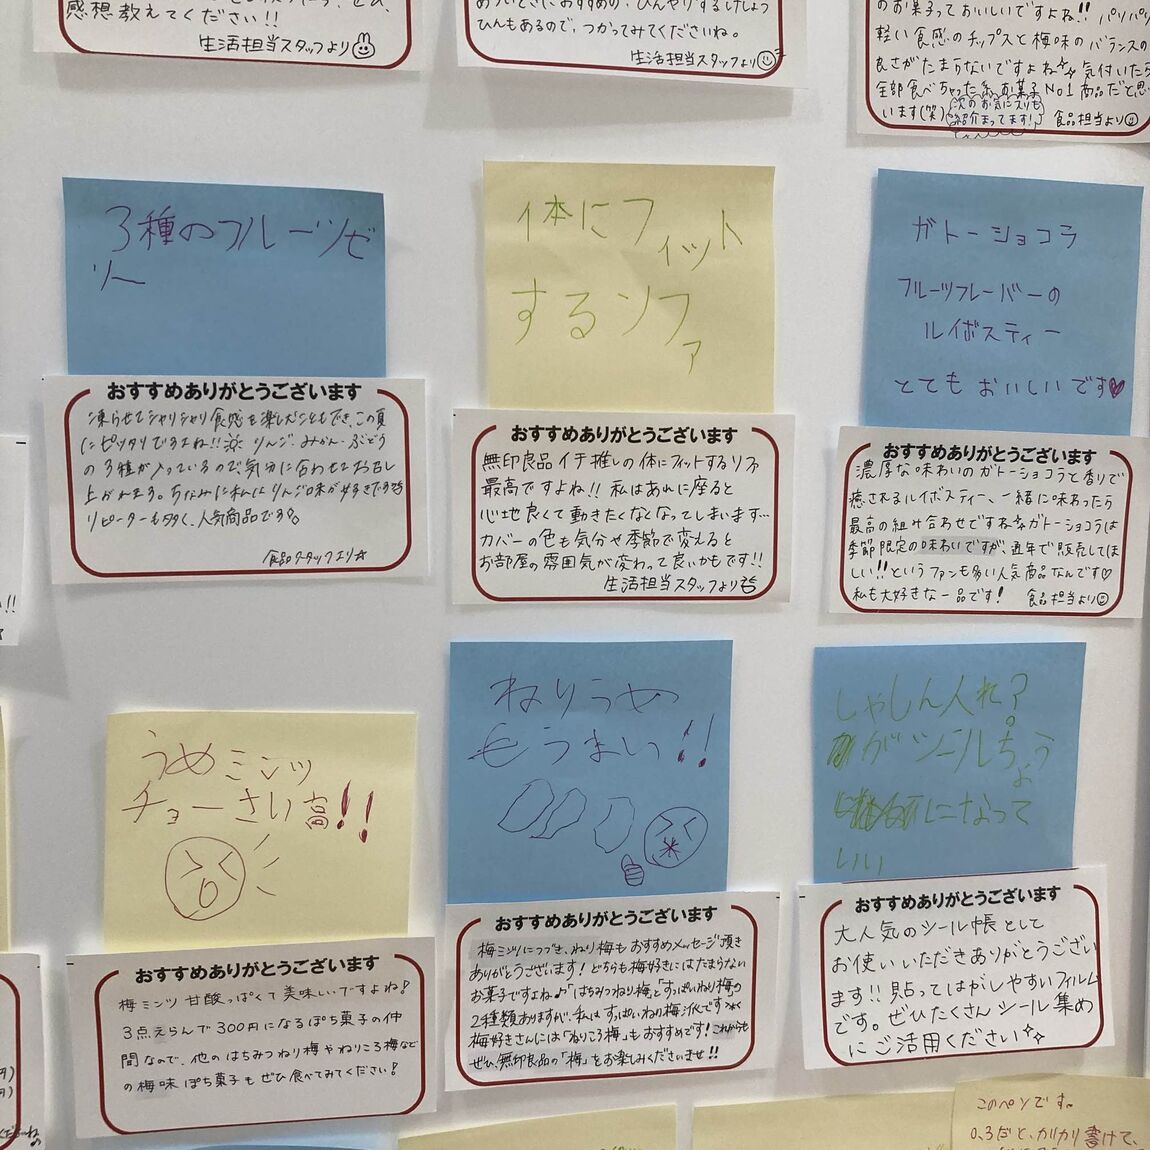 感想教えてください!!
生活担当スタッフより
ひんもあるので、つかってみてくださいね。
生活担当スタッフより
のお菓子っておいしいですよね!! パリパリ
軽い食感のチップスと梅味のバランスの
良さがたまらないですよね 気付いたら
全部食べちゃった系お菓子No1商品だと思
います(笑) 次のお気に入りも
紹介まってます! 食品担当より
3種のフルーツゼ
リー
おすすめありがとうございます
凍らせてシャリシャリ食感を楽しむこともでき、この夏
にピッタリですよね!! りんご・みかん・ぶどう
の3種が入っているので気分に合わせてお召し
上がれます。ちなみに私はりんご味が好きです
リピーターも多く、人気商品です
食品スタッフより☆
体にフィット
するソファ
おすすめありがとうございます
無印良品イチ推しの体にフィットするソファ
最高ですよね!! 私はあれに座ると
心地良くて動きたくなくなってしまいます…
カバーの色も気分や季節で変えると
お部屋の雰囲気が変わって良いかもです!!
生活担当スタッフより
ガトーショコラ
フルーツフレーバーの
ルイボスティー
とてもおいしいです♥
おすすめありがとうございます
濃厚な味わいのガトーショコラと香りで
癒されるルイボスティー、一緒に味わったら
最高の組み合わせですね ガトーショコラは
季節限定の味わいですが、通年で販売してほ
しい!!というファンも多い人気商品なんです♡
私も大好きな一品です! 食品担当より
うめミンツ
チョーさい高!!
おすすめありがとうございます
梅ミンツ 甘酸っぱくて美味しいですよね!
3点えらんで300円になるぽち菓子の仲
間なので、他のはちみつねり梅やねりころ梅など
の梅味ぽち菓子もぜひ食べてみてください!
ねりうめ
もうまい!!
おすすめありがとうございます
梅ミンツにつづき、ねり梅もおすすめメッセージ頂き
ありがとうございます! どちらも梅好きにはたまらない
お菓子ですよね♪「はちみつねり梅」と「すっぱいねり梅」の
2種類ありますが、私はすっぱいねり梅派です
梅好きさんには「ねりころ梅」もおすすめです! これからも
ぜひ、無印良品の「梅」をお楽しみくださいませ!!
しゃしん入れ?
がシールちょ
うになって
いい
おすすめありがとうございます
大人気のシール帳として
お使いいただきありがとうござい
ます!! 貼ってはがしやすいフィルム
です。ぜひたくさんシール集め
にご活用ください
このペンです。
0.3だと、カリカリ書けて、